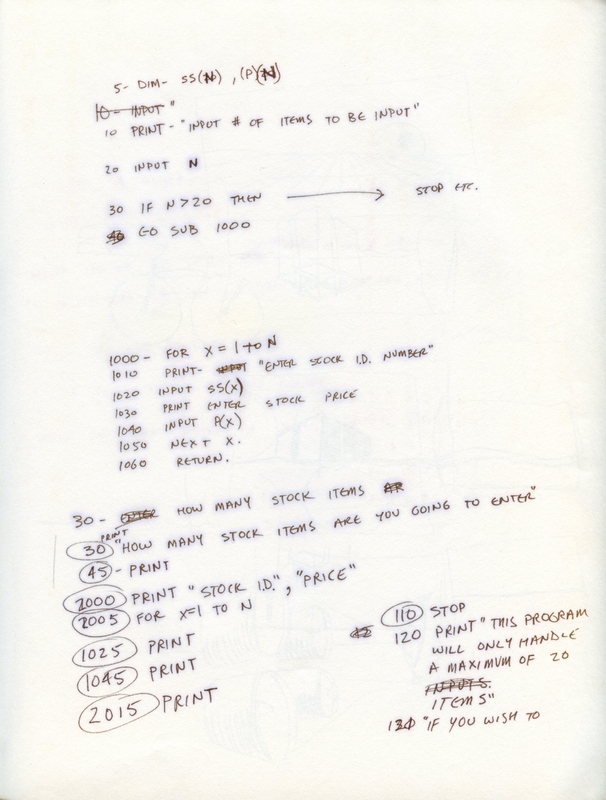 5- DIM- SS(N), (P)(N)
10 - INPUT "
10 PRINT- "INPUT # OF ITEMS TO BE INPUT"
20 INPUT N
30 IF N>20 THEN → STOP ETC.
GO SUB 1000
1000 - FOR X = 1 TO N
1010 PRINT- "ENTER STOCK I.D. NUMBER"
1020 INPUT SS(X)
1030 PRINT ENTER STOCK PRICE
1040 INPUT P(X)
1050 NEXT X.
1060 RETURN.
30 - HOW MANY STOCK ITEMS
PRINT
30 "HOW MANY STOCK ITEMS ARE YOU GOING TO ENTER"
45 - PRINT
2000 PRINT "STOCK I.D.", "PRICE"
2005 FOR X=1 TO N
1025 PRINT
1045 PRINT
2015 PRINT
110 STOP
120 PRINT "THIS PROGRAM
WILL ONLY HANDLE
A MAXIMUM OF 20
INPUTS.
ITEMS"
130 "IF YOU WISH TO